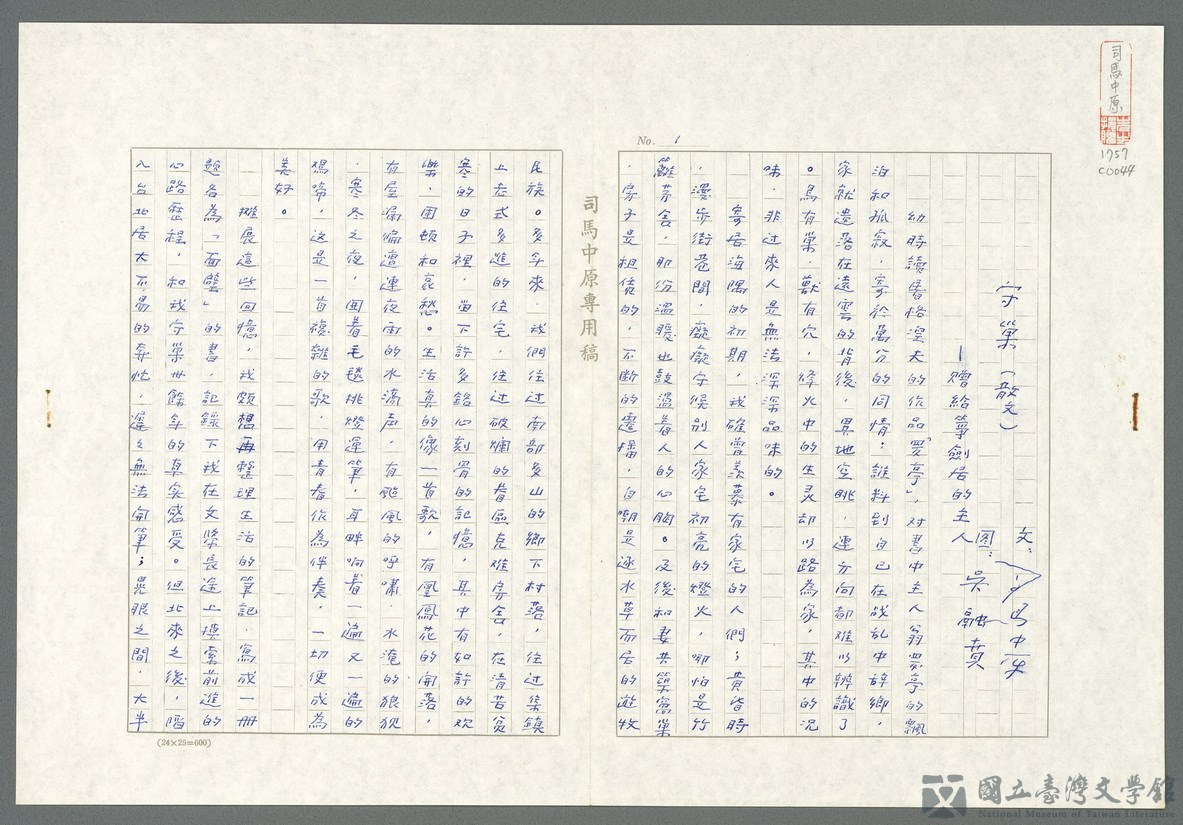 司馬中原
1757
C0044
No. 1
守巢(散文)
文：司馬中原
圖：吳融賁
—贈給箏劍居的主人
幼時讀屠格湼夫的作品「羅亭」，对書中主人翁羅亭的飄
泊和孤寂，寄於萬分的同情；誰料到自己在战乱中辞鄉，
家就遺落在遠雲的背後，異地空眺，連方向都难以辨識了
。鳥有巢，獸有穴，烽火中的生灵却以路為家，其中的况
味，非过來人是無法深深品味的。
寄居海隅的初期，我確曾羨慕有家宅的人們；黃昏時
，漫步街巷間，癡癡守候别人家宅初亮的燈火，哪怕是竹
籬茅舍，那份溫暖也鼓溫着人的心胸。及後和妻共築窩巢
，房子是租賃的，不断的遷播，自嘲是逐水草而居的遊牧
司馬中原專用稿
民族。多年來，我們住过南部多山的鄉下村落，住过集鎮
上老式多進的住宅，住过破爛的眷區克难房舍，在清苦貧
寒的日子裡，留下許多銘心刻骨的記憶，其中有如許的欢
樂，困頓和哀愁。生活真的像一首歌，有鳳凰花的開落，
有屋漏偏遭連夜雨的水滴声，有颱風的呼嘯，水淹的狼狽
，寒冬之夜，圍着毛毯挑燈運筆，耳畔响着一遍又一遍的
鸡啼，这是一首複雜的歌，用青春作為伴奏，一切便成為
美好。
攤展這些回憶，我頗想再整理生活的筆記，寫成一冊
題名為「面壁」的書，記錄下我在文學長途上摸索前進的
心路歷程，和我守巢卅餘年的真实感受。但北來之後，陷
入台北居大不易的奔忙，遲遲無法開筆；晃眼之間，大半
(24×25=600)
國立臺灣文學館
National Museum of Taiwan Literature